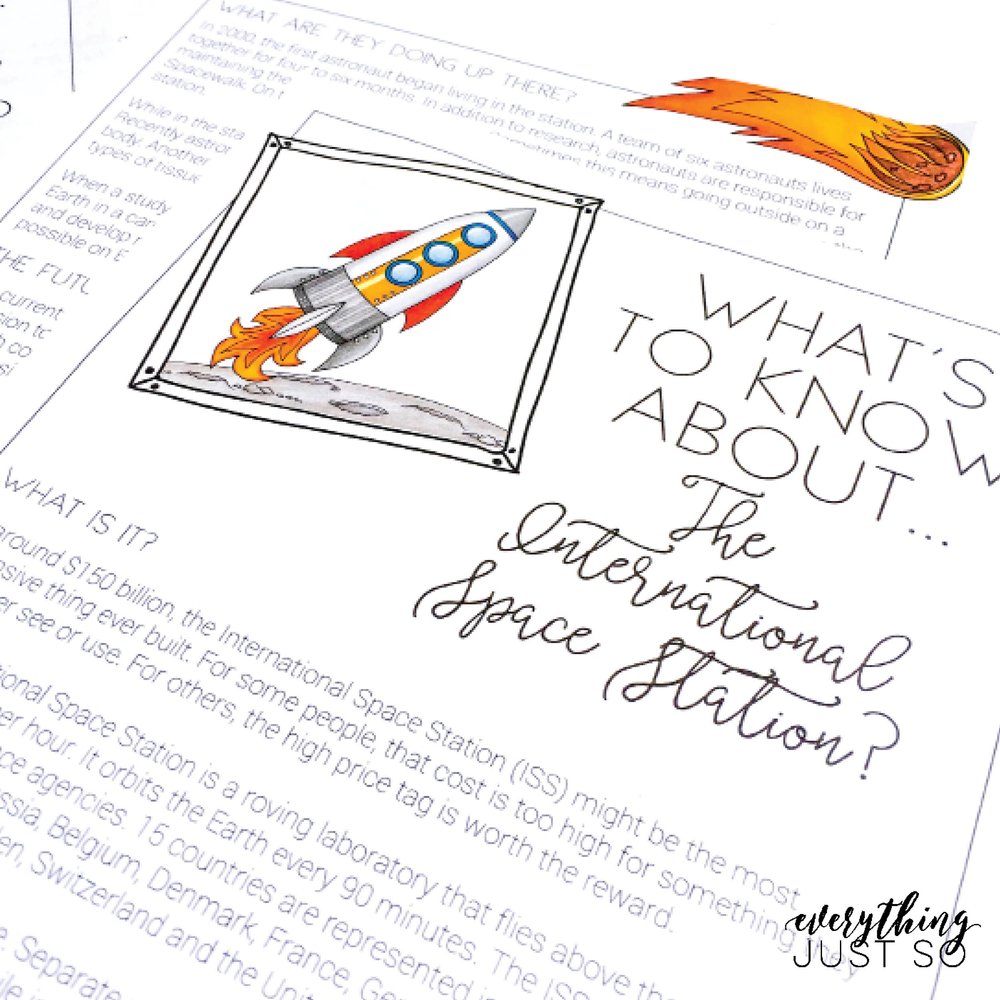 WHAT ARE THEY DOING UP THERE?
In 2000, the first astronaut began living in the station. A team of six astronauts lives
together for four to six months. In addition to research, astronauts are responsible for
maintaining the
this means going outside on a
Spacewalk. On
station.
While in the sta
Recently astro
body. Another
types of tissue
When a study
Earth in a car
and develop
possible on E
THE FUTU
current
WHAT'S
TO KNOW
ABOUT...
The
International
Space Station?
WHAT IS IT?
around $150 billion, the International Space Station (ISS) might be the most
nsive thing ever built. For some people, that cost is too high for something they
er see or use. For others, the high price tag is worth the reward.
tional Space Station is a roving laboratory that flies above the
per hour. It orbits the Earth every 90 minutes. The ISS
ce agencies. 15 countries are represented
ssia, Belgium, Denmark, France, Ge
en, Switzerland and the Unit
e. Separate
everything
JUST SO